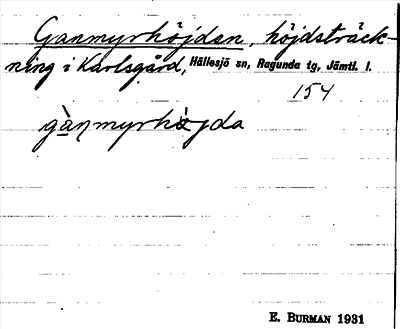 Ganmyrhöjden, höjdsträck-
ning i Karlsgård, Hällesjö sn, Ragunda tg, Jämtl. l.
154
gànmyrhöjda
E. BURMAN 1931